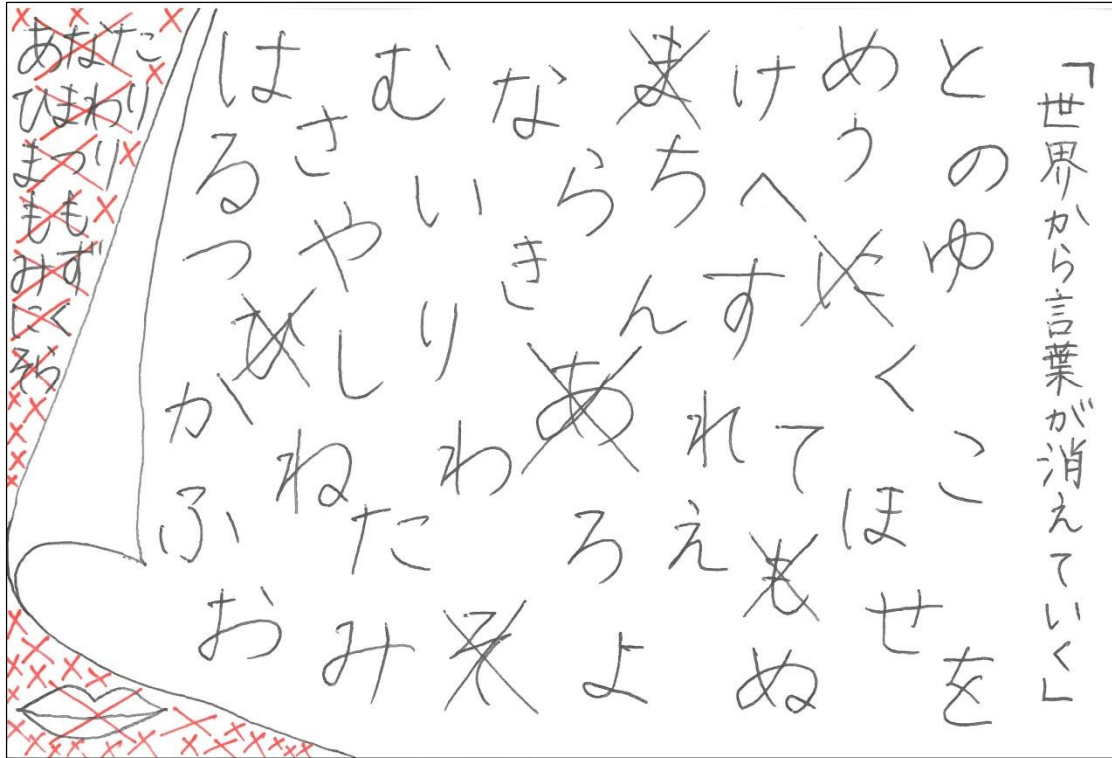 「世界から言葉が消えていく」
とのゆこを
めうにくほせ
けへすてもぬ
まちんれえ
ならあろよ
むいきりわそ
さやしたみ
はるつひねかふお
あなた
ひまわり
まつり
もも
みず
にく
そら